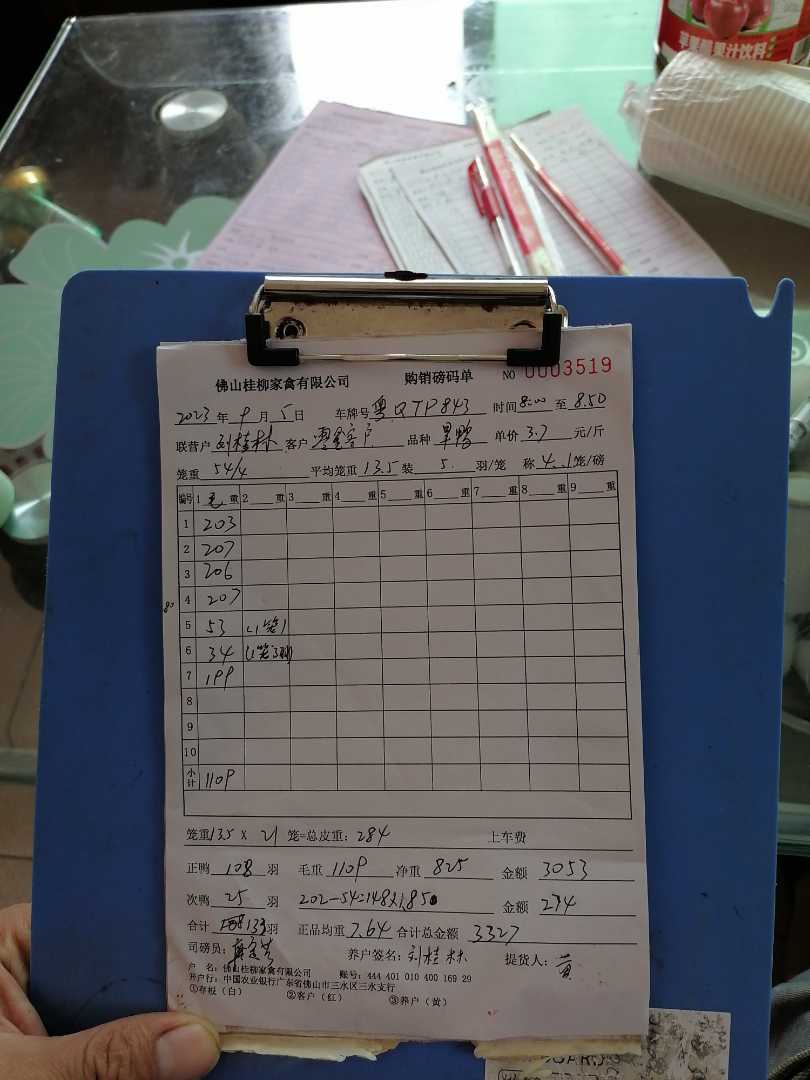 苹果醋果汁饮料
佛山桂柳家禽有限公司 购销磅码单 NO 0003519
2023年9月5日 车牌号粤QTP843 时间8:00至8.50
联营户刘桂林 客户零金客户 品种 单价3.7元/斤
笼重54/4 平均笼重13.5 装5羽/笼 称4..1笼/磅
编号 1毛重 2重 3重 4重 5重 6重 7重 8重 9重
1 203
2 207
3 206
4 207
5 53 (1笼)
6 34 (1笼3羽)
7 199
8
9
10
小计 1109
笼重13.5 X 21笼=总皮重:284 上车费
正鸭108羽 毛重1109 净重825 金额3053
次鸭25羽 202-54=148X1.85 金额274
合计133羽 正品均重7.64 合计总金额3327
司磅员: 养户签名:刘桂林 提货人:黄
户 名:佛山桂柳家禽有限公司 账号:444 401 010 400 169 29
开户行:中国农业银行广东省佛山市三水区三水支行
①存板(白) ②客户(红) ③养户(黄)